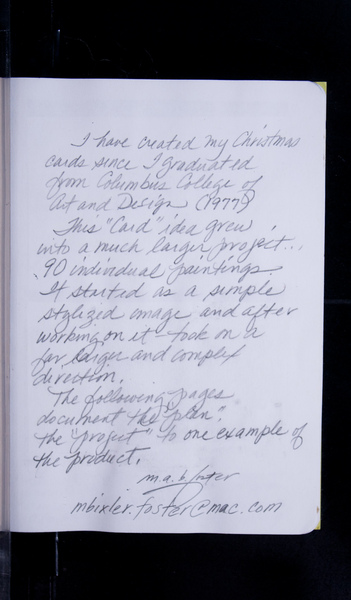 I have created my Christmas
cards since I graduated
from Columbus College of
Art and Design (1977)
This "Card" idea grew
into a much larger project...
90 individual paintings
It started as a simple
stylized image and after
working on it - took on a
far larger and complex
direction.
The following pages
document the "plan".
the "project" to one example of
the product.
m.a.b.foster
mbixler.foster@mac.com